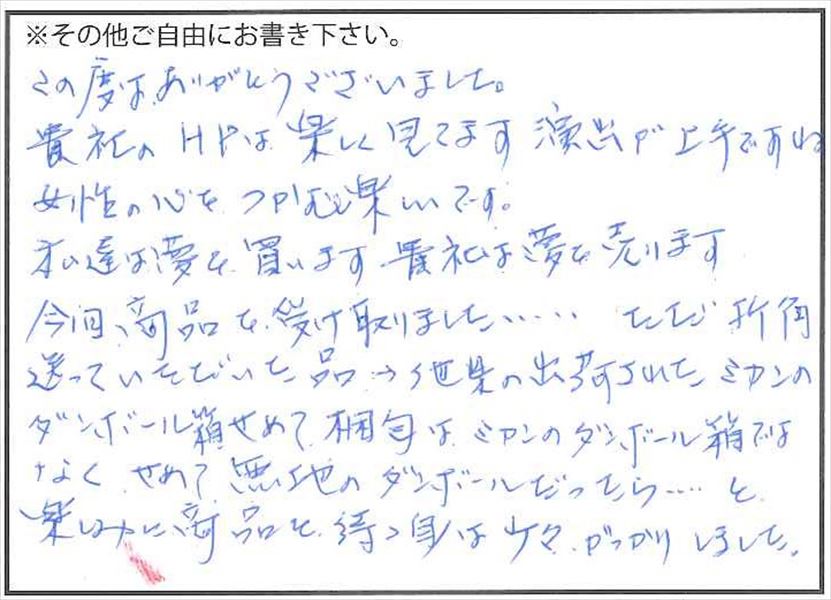 ※その他ご自由にお書き下さい。
この度は、ありがとうございました。
貴社の HPは 楽しく 見てます 演出が 上手ですね
女性の心を つかむ 楽しいです。
私達は夢を 買います 貴社は夢を 売ります
今回、商品を 受け取りました…… ただ 折角
送っていただいた 品→他県の出荷された ミカンの
ダンボール箱 せめて 梱包は ミカンのダンボール箱では
なく せめて 無地の ダンボールだったら…. と
楽しみに、商品を 待つ身は 少々 がっかり しました。